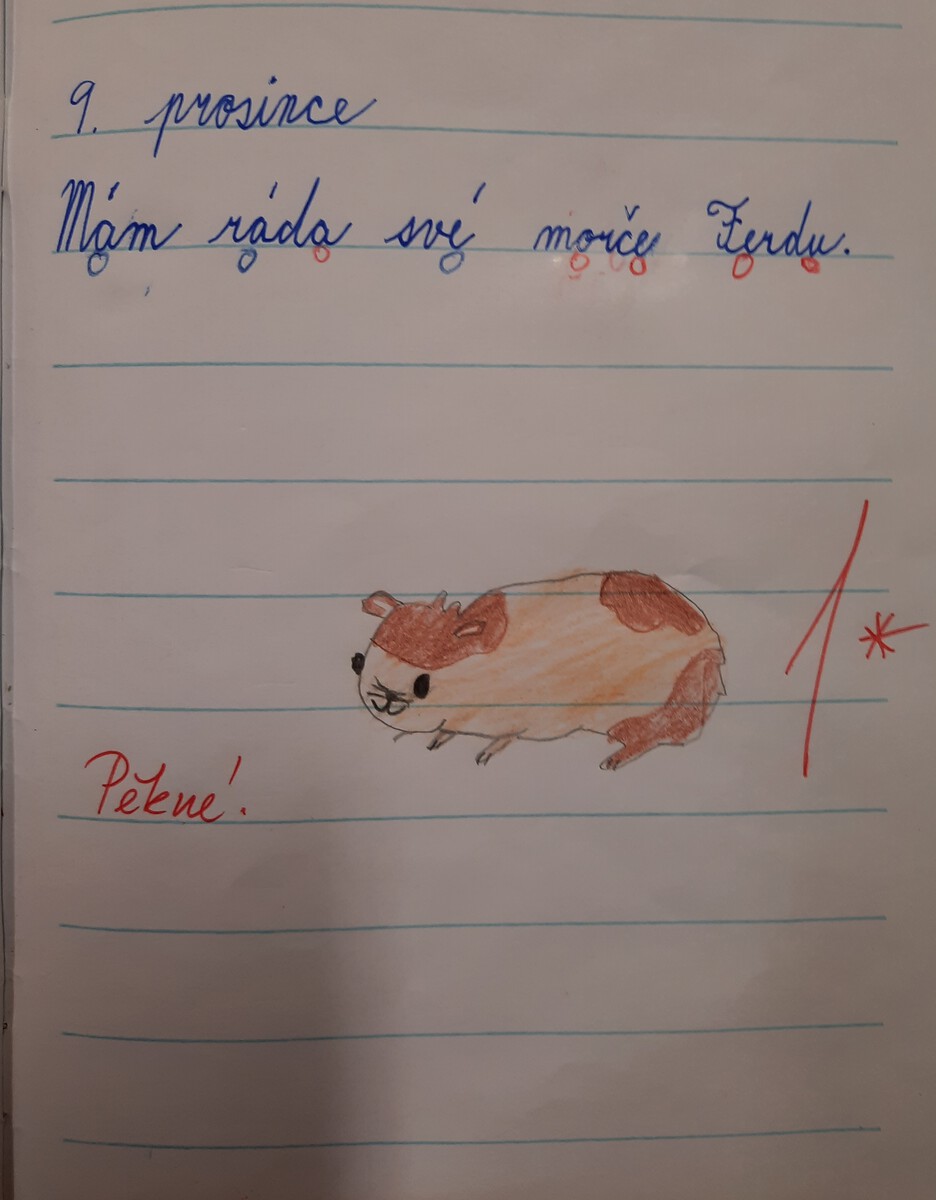 9. prosince
Mám ráda své morče Ferdu.
1*
Pěkné!